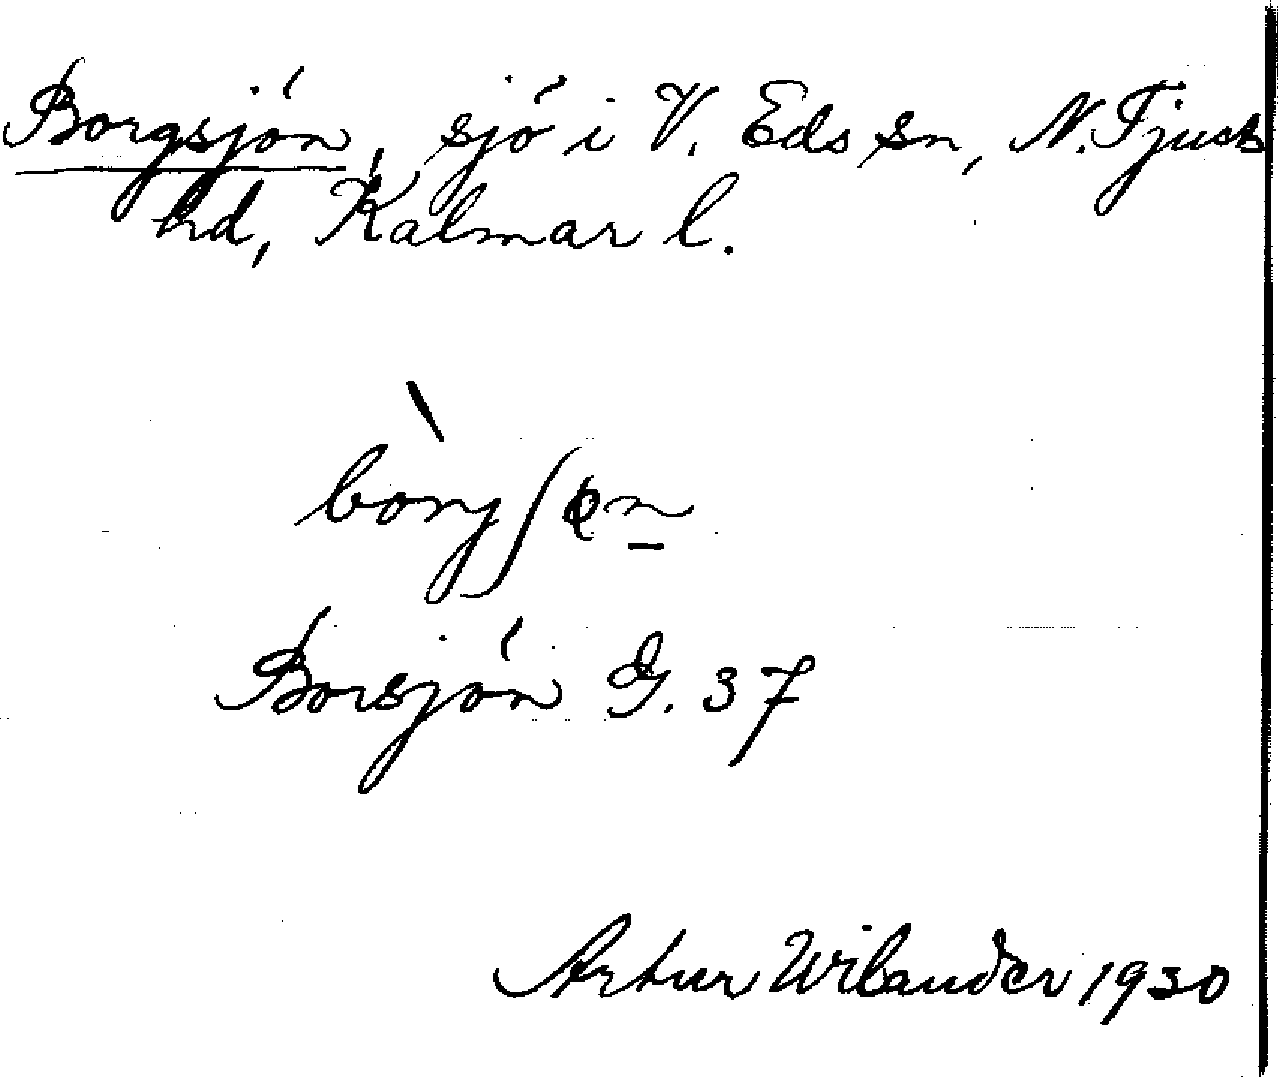 Borgsjön, sjö i V. Eds sn, N. Tjusts
hd, Kalmar l.
Borsjön G. 37
Artur Wilander 1930